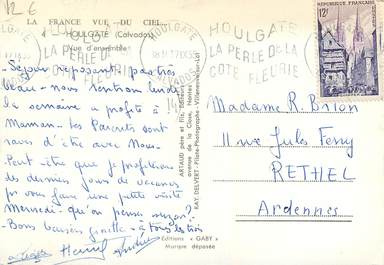 LA FRANCE VUE DU CIEL...
HOULGATE (Calvados)
Vue d'ensemble
HOULGATE
LA PERLE DE LA
CÔTE FLEURIE
12F
Séjour reposant, pas très
beau - nous rentrons lundi
la semaine a profité à
Maman - les Parents sont
ravis d'être avec Nous -
Peut être que je profiterai
des derniers jours de vacances
pr vous faire une petite visite
Mercredi - qu'en pensez vous ?
Bons baisers à tous les trois
Henri
ARTAUD père et fils, Éditeurs
avenue de la Close, Nantes
RAY. DELVERT - Pilote-Photographe - Villeneuve-sur-Lot
Editions « GABY »
Marque déposée
Madame R. Brion
11 rue Jules Ferry
RETHEL
Ardennes